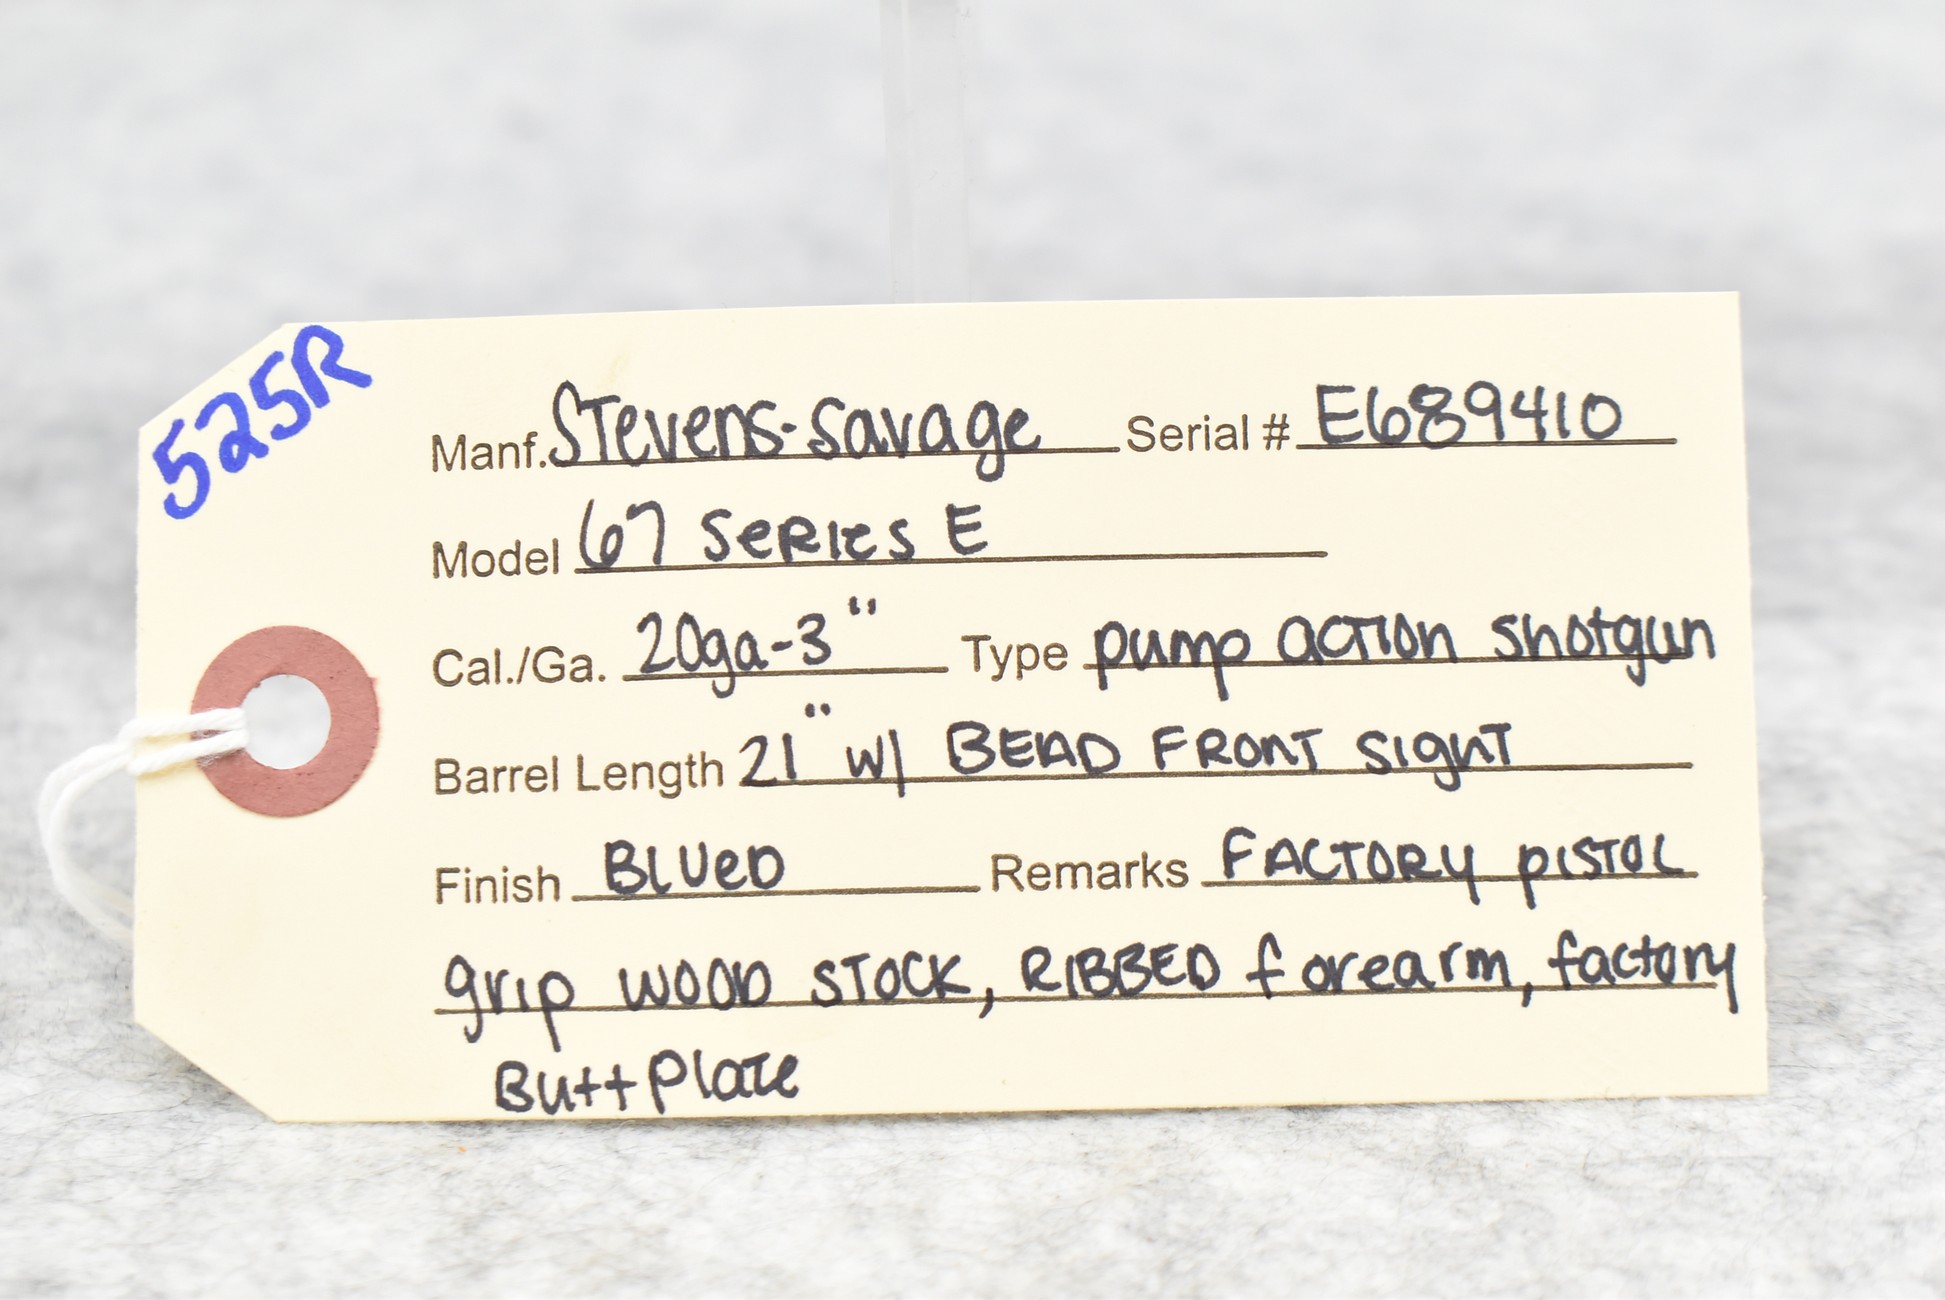 525R
Manf. Stevens-Savage Serial # E689410
Model 67 Series E
Cal./Ga. 20ga-3" Type pump action shotgun
Barrel Length 21" w/ BEAD FRONT SIGHT
Finish BLUED Remarks FACTORY PISTOL
grip WOOD STOCK, RIBBED forearm, factory
Butt Plate